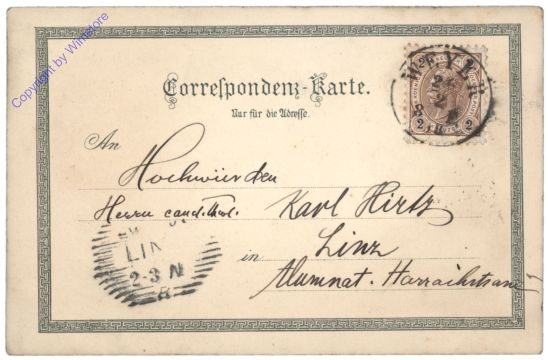 Copyright by Winstore
Correspondenz-Karte.
Nur für die Adresse.
WEYER
2
2
An
Hochwürden
Herrn cand. theol. Karl Hirtz
in Linz
Alumnat. Harrachstrasse
LIN
2-3 N